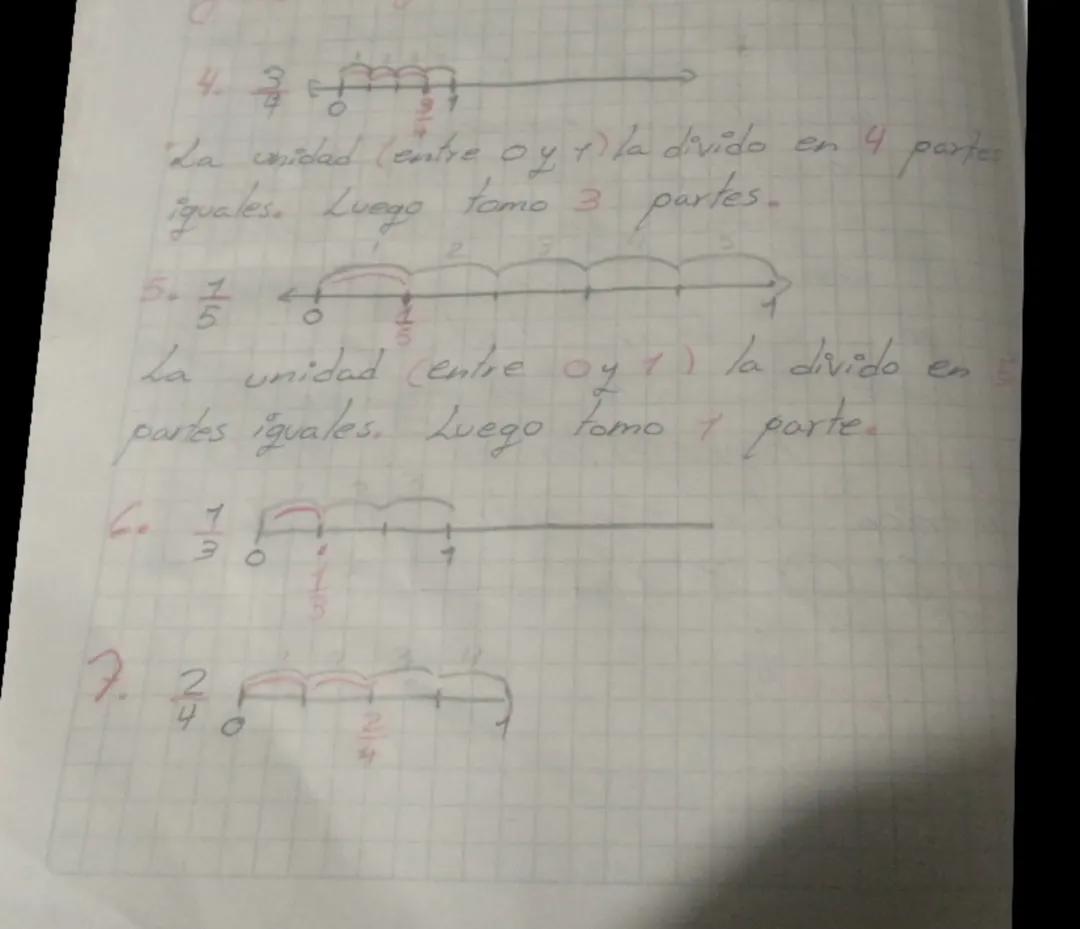 4. 3/4 0 3/4 1
La unidad (entre 0 y 1) la divido en 4 partes
iguales. Luego tomo 3 partes.
1 2 3 4 5
5. 1/5 0 1/5 1
La unidad (entre 0 y 1) la divido en 5
partes iguales. Luego tomo 1 parte.
6. 1/3 0 1/3 1
7. 2/4 0 2/4 1